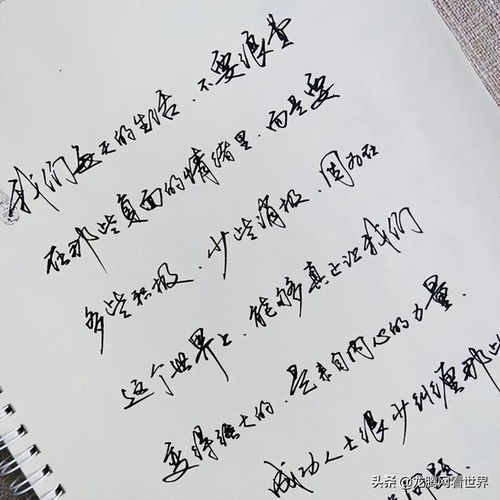 我们每天的生活.不要浪费
在那些负面的情绪里.而是要
多些积极.少些消极.因为在
这个世界上.能够真正让我们
变得强大的.是来自内心的力量.
成功人士很少纠缠那些
问题.
头条 @龙腾网看世界